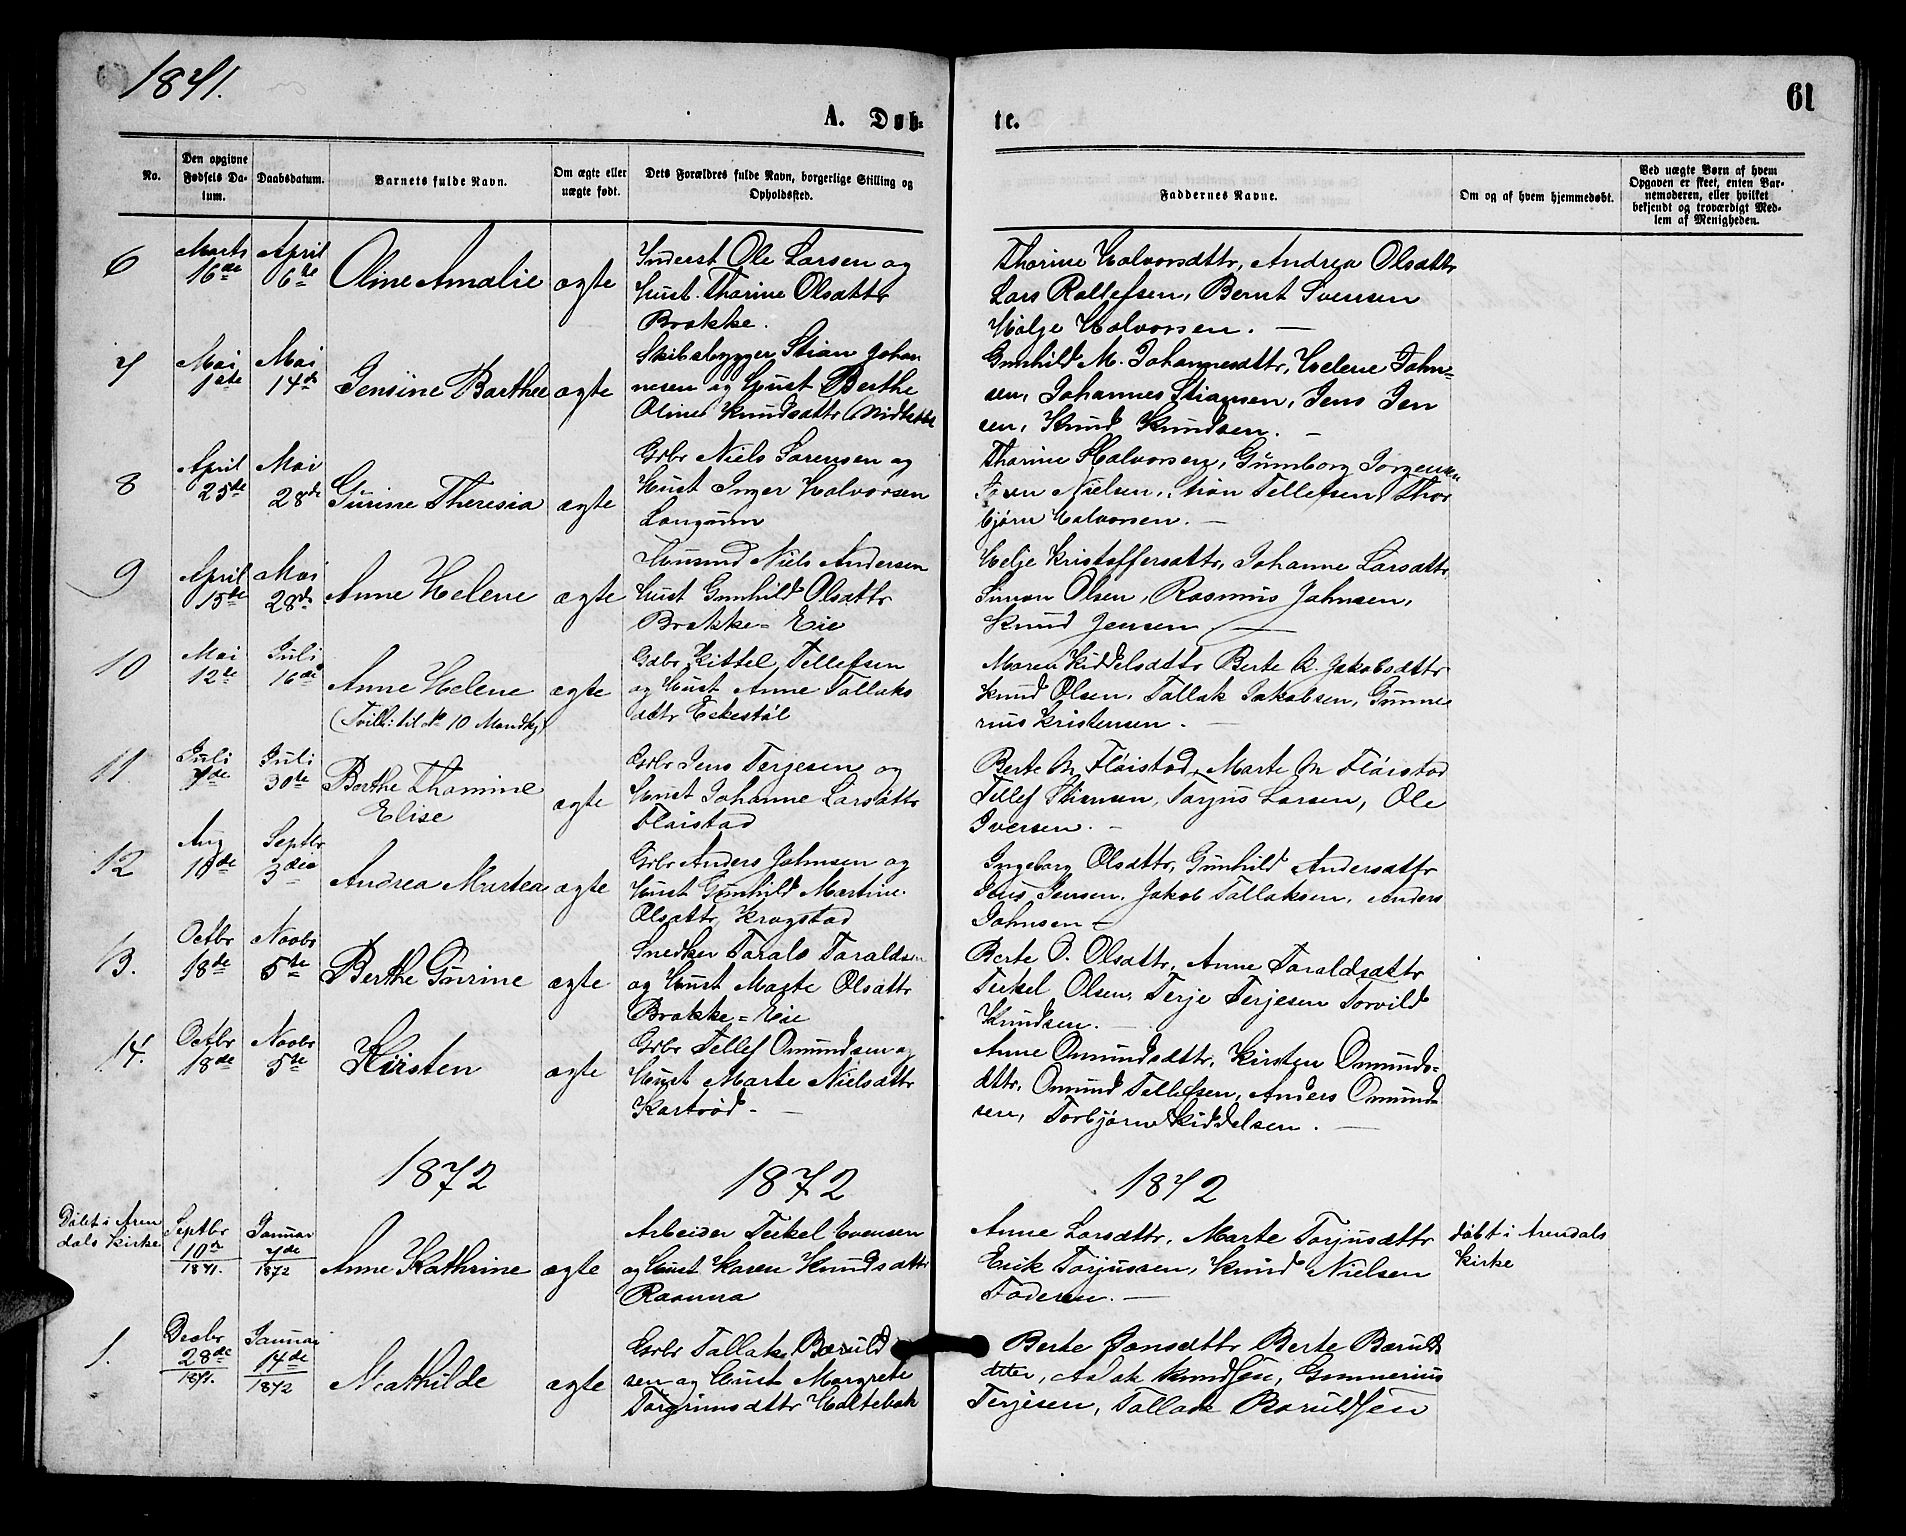 1871.
61
A. Døb-
te.
No.
Den opgivne Fødsels Da-tum.
Daabsdatum.
Barnets fulde Navn.
Om ægte eller uægte født.
Dets Forældres fulde Navn, borgerlige Stilling og Opholdssted.
Faddernes Navne.
Om og af hvem hjemmedøbt.
Ved uægte Børn af hvem Opgaven er skeet, enten Bar-nemoderen, eller hvilket bekjendt og troværdigt Med-lem af Menigheden.
6 Marts 16de April 6te Oline Amalie ægte
Inderst Ole Larsen og
Hust. Thorine Olsdttr
Brække.
Thorine Halvorsdttr, Andrea Olsdttr
Lars Rollefsen, Bernt Svensen
Hælge Halvorsen. —
7 Mai 1ste Mai 14de Jensine Barthee ægte
Skibsbygger Stian Johan
nesen og Hust Berthe
Oline Knudsdttr
Gunhild M. Johannesdttr, Helene John-
sen, Johannes Stiansen, Jens Jen
sen, Knud Knudsen. —
8 April 25de Mai 28de Gurine Theresia ægte
Grbr Niels Sørensen og
Hust Inger Halvorsen
Langunn
Thorine Halvorsen, Gunnborg Jørgensen
Nielsen, Stian Tellefsen, Thor
bjørn Halvorsen. —
9 April 15de Mai 28de Anne Helene ægte
Husmd Niels Andersen
Hust Gunhild Olsdttr
Brække-Eie
Helje Kristoffersdttr, Johanne Larsdttr
Simon Olsen, Rasmus Johnsen,
Knud Jensen —
10 Mai 12te Juli 16de Anne Helene ægte
(Tvill: til No 10 Mandkj)
Gdbr Kittel Tellefsen
og Hust Anne Tallaks
dttr Eskestøl
Maren Kiddelsdttr Berte K. Jakobsdttr
Knud Olsen, Tallak Jakobsen, Gunne
rius Kristensen. —
11. Juli 7de Juli 30te Berthe Thomine
Elise ægte
Grbr Jens Terjesen og
Hust Johanne Larsdttr
Fløistad
Berte M Fløistad, Marte M Fløistad
Tellef Stiansen, Torjus Larsen, Ole
Iversen. —
12 Aug 18de Septbr 3die Andrea Martea ægte
Grbr Anders Johnsen og
Hust Gunhild Martine
Olsdttr Krogstad
Ingeborg Olsdttr, Gunhild Andersdttr
Jens Jensen, Jakob Tallaksen, Anders
Johnsen —
13. Octbr 18de Novbr 5te Berthe Gurine ægte
Snedker Tarald Taraldsen
og Hust Marte Olsdttr
Brække-Eie
Berte O. Olsdttr, Anne Taraldsdttr
Terkel Olsen, Terje Terjesen Torvild
Knudsen. —
14. Octbr 18de Novbr 5te Kirsten ægte
Grbr Tellef Omundsen og
Hust Marte Nielsdttr
Kartrød —
Anne Omundsdttr, Kirsten Omunds-
dttr, Omund Tellefsen, Anders Omund
sen, Torbjørn Kiddelsen. —
1872 1872 1872
Døbt i Aren
dals Kirke
Septbr 10de 1871. Januar 7de 1872 Anne Kathrine ægte
Arbeider Terkel Evensen
og Hust Karen Knudsdttr
Raanna
Anne Larsdttr, Marte Torjusdttr
Erik Torjussen, Knud Nielsen
Faderen. —
døbt i Arendals
Kirke
1. Decbr 28de 1871. Januar 14de 1872 Mathilde ægte
Grbr Tallak Bæruld
sen og Hust Margrete
Torgrimsdttr Holtebæk
Berte Jonsdttr Berte Bæruld
dtter, Aslak Knudsen, Gunnerius
Terjesen, Tallak Bæruldsen